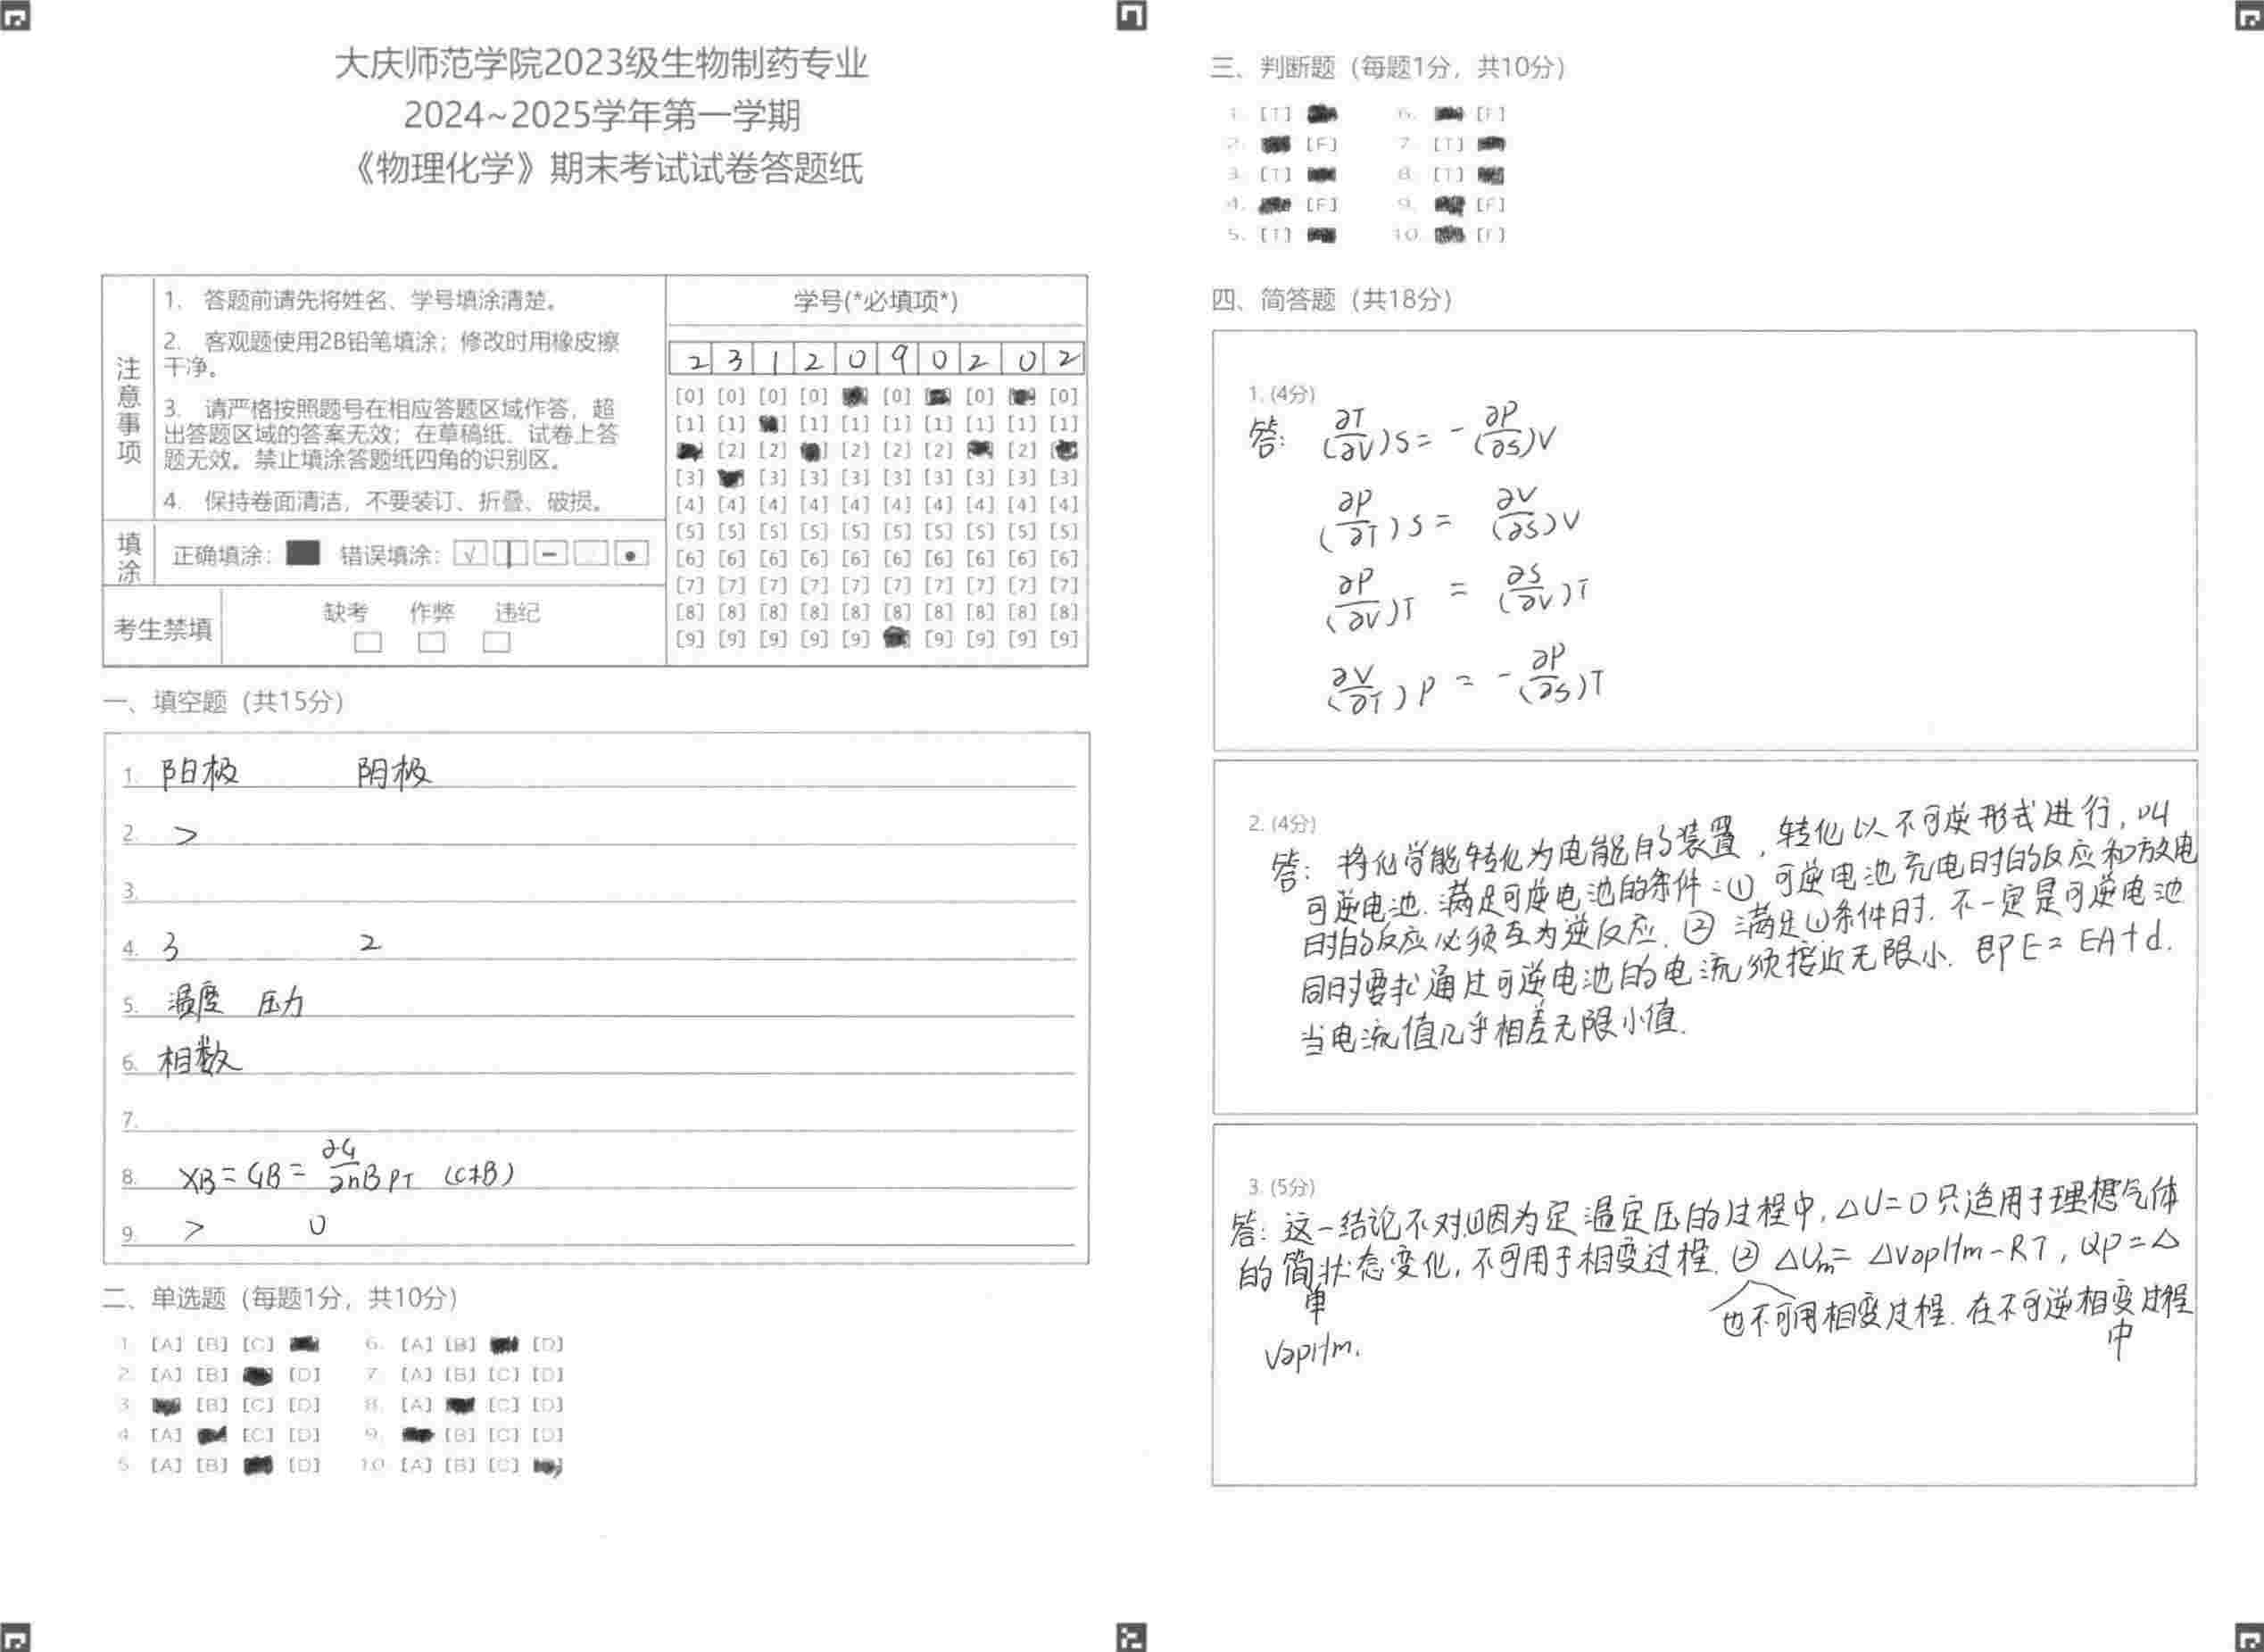 大庆师范学院2023级生物制药专业
2024~2025学年第一学期
《物理化学》期末考试试卷答题纸
注意事项
1. 答题前请先将姓名、学号填涂清楚。
2. 客观题使用2B铅笔填涂；修改时用橡皮擦
干净。
3. 请严格按照题号在相应答题区域作答，超
出答题区域的答案无效；在草稿纸、试卷上答
题无效。禁止填涂答题纸四角的识别区。
4. 保持卷面清洁，不要装订、折叠、破损。
填涂
正确填涂： 错误填涂：
考生禁填
缺考 作弊 违纪
学号(*必填项*)
2 3 1 2 0 9 0 2 0 2
[0] [0] [0] [0] [0] [0]
[1] [1] [1] [1] [1] [1] [1] [1] [1]
[2] [2] [2] [2] [2] [2]
[3] [3] [3] [3] [3] [3] [3] [3] [3]
[4] [4] [4] [4] [4] [4] [4] [4] [4] [4]
[5] [5] [5] [5] [5] [5] [5] [5] [5] [5]
[6] [6] [6] [6] [6] [6] [6] [6] [6] [6]
[7] [7] [7] [7] [7] [7] [7] [7] [7] [7]
[8] [8] [8] [8] [8] [8] [8] [8] [8] [8]
[9] [9] [9] [9] [9] [9] [9] [9] [9]
一、填空题（共15分）
1. 阳极 阴极
2. >
3.
4. 3 2
5. 温度 压力
6. 相数
7.
8. XB=GB=∂G/∂nB PT (C≠B)
9. > 0
二、单选题（每题1分，共10分）
1. [A] [B] [C] 6. [A] [B] [D]
2. [A] [B] [D] 7. [A] [B] [C] [D]
3. [B] [C] [D] 8. [A] [C] [D]
4. [A] [C] [D] 9. [B] [C] [D]
5. [A] [B] [D] 10. [A] [B] [C]
三、判断题（每题1分，共10分）
1. [T] 6. [F]
2. [F] 7. [T]
3. [T] 8. [T]
4. [F] 9. [F]
5. [T] 10. [F]
四、简答题（共18分）
1. (4分)
答： (∂T/∂V)S = -(∂P/∂S)V
(∂P/∂T)S = (∂V/∂S)V
(∂P/∂V)T = (∂S/∂V)T
(∂V/∂T)P = -(∂P/∂S)T
2. (4分)
答：将化学能转化为电能的装置，转化以不可逆形式进行，叫
可逆电池.满足可逆电池的条件：① 可逆电池充电时的反应和放电
时的反应必须互为逆反应. ② 满足①条件时.不一定是可逆电池
同时要求通过可逆电池的电流须接近无限小. 即E=EA+d.
当电流值几乎相差无限小值.
3. (5分)
答：这一结论不对.①因为定温定压的过程中,△U=0只适用于理想气体
的简单状态变化,不可用于相变过程.② △Um=△vapHm-RT, QP=△
也不可用相变过程.在不可逆相变过程中
vapHm.